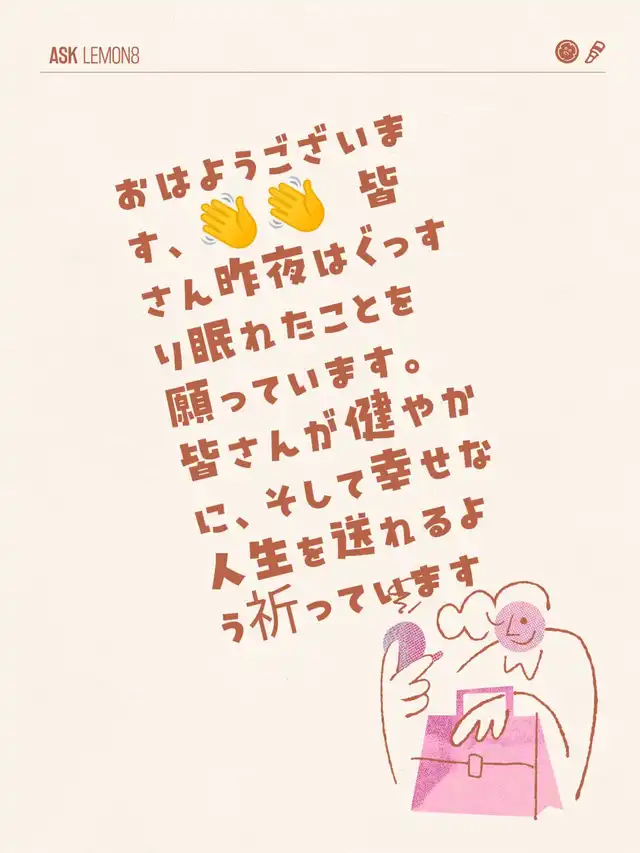 ASK LEMON8
おはようございま
す、👋👋 皆
さん昨夜はぐっす
り眠れたことを
願っています。
皆さんが健やか
に、そして幸せな
人生を送れるよ
う祈っています